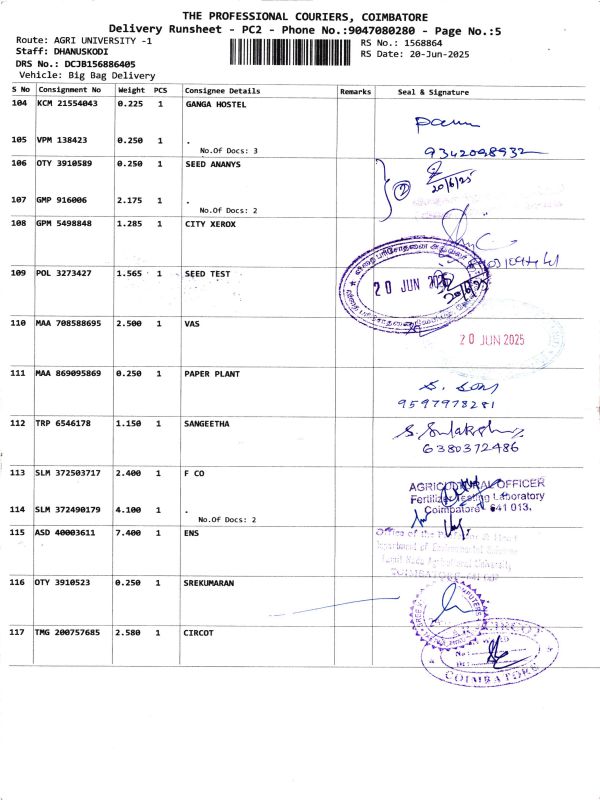 THE PROFESSIONAL COURIERS, COIMBATORE
Delivery Runsheet - PC2 - Phone No.:9047080280 - Page No.:5
Route: AGRI UNIVERSITY -1
RS No.: 1568864
Staff: DHANUSKODI
RS Date: 20-Jun-2025
DRS No.: DCJB156886405
Vehicle: Big Bag Delivery
S No Consignment No Weight PCS Consignee Details Remarks Seal & Signature
104 KCM 21554043 0.225 1 GANGA HOSTEL
105 VPM 138423 0.250 1 .
No.Of Docs: 3
9342098932
106 OTY 3910589 0.250 1 SEED ANANYS
20/6/25
107 GMP 916006 2.175 1 .
No.Of Docs: 2
2
108 GPM 5498848 1.285 1 CITY XEROX
109 POL 3273427 1.565 1 SEED TEST
20 JUN 2025
110 MAA 708588695 2.500 1 VAS
20 JUN 2025
111 MAA 869095869 0.250 1 PAPER PLANT
9597978281
112 TRP 6546178 1.150 1 SANGEETHA
6380372486
113 SLM 372503717 2.400 1 F CO
AGRICULTURAL OFFICER
Fertilizer Testing Laboratory
Coimbatore 641 013.
114 SLM 372490179 4.100 1 .
No.Of Docs: 2
115 ASD 40003611 7.400 1 ENS
116 OTY 3910523 0.250 1 SREKUMARAN
117 TMG 200757685 2.580 1 CIRCOT
CIRCOT
COIMBATORE